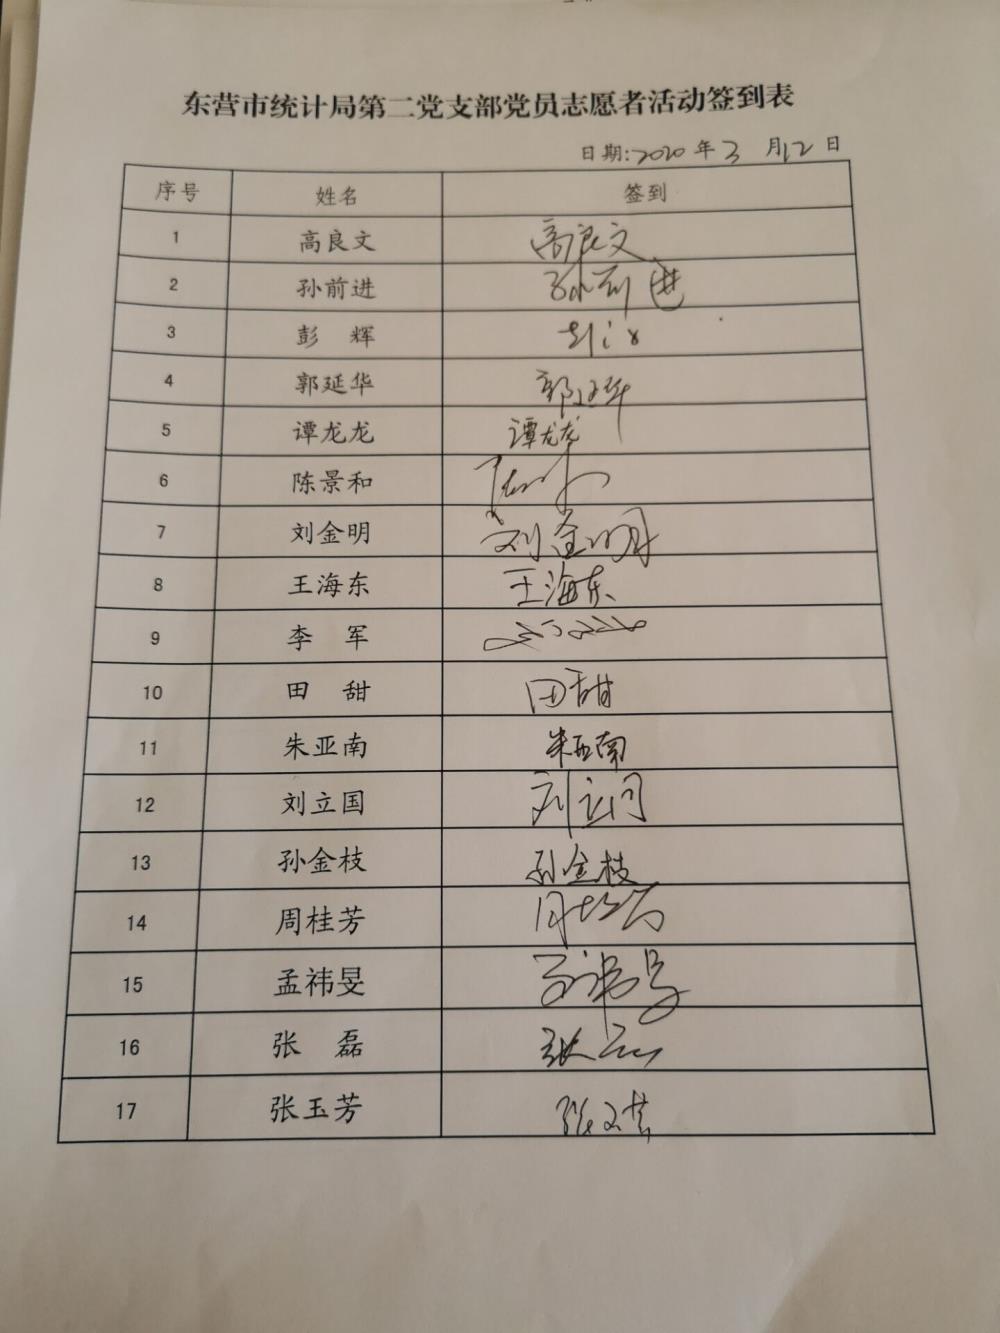 东营市统计局第二党支部党员志愿者活动签到表
日期:2020年3月12日
序号 姓名 签到
1 高良文 高良文
2 孙前进 孙前进
3 彭 辉
4 郭延华 郭延华
5 谭龙龙 谭龙龙
6 陈景和
7 刘金明 刘金明
8 王海东 王海东
9 李 军
10 田 甜 田甜
11 朱亚南 朱亚南
12 刘立国 刘立国
13 孙金枝 孙金枝
14 周桂芳 周桂芳
15 孟祎旻
16 张 磊 张磊
17 张玉芳 张玉芳